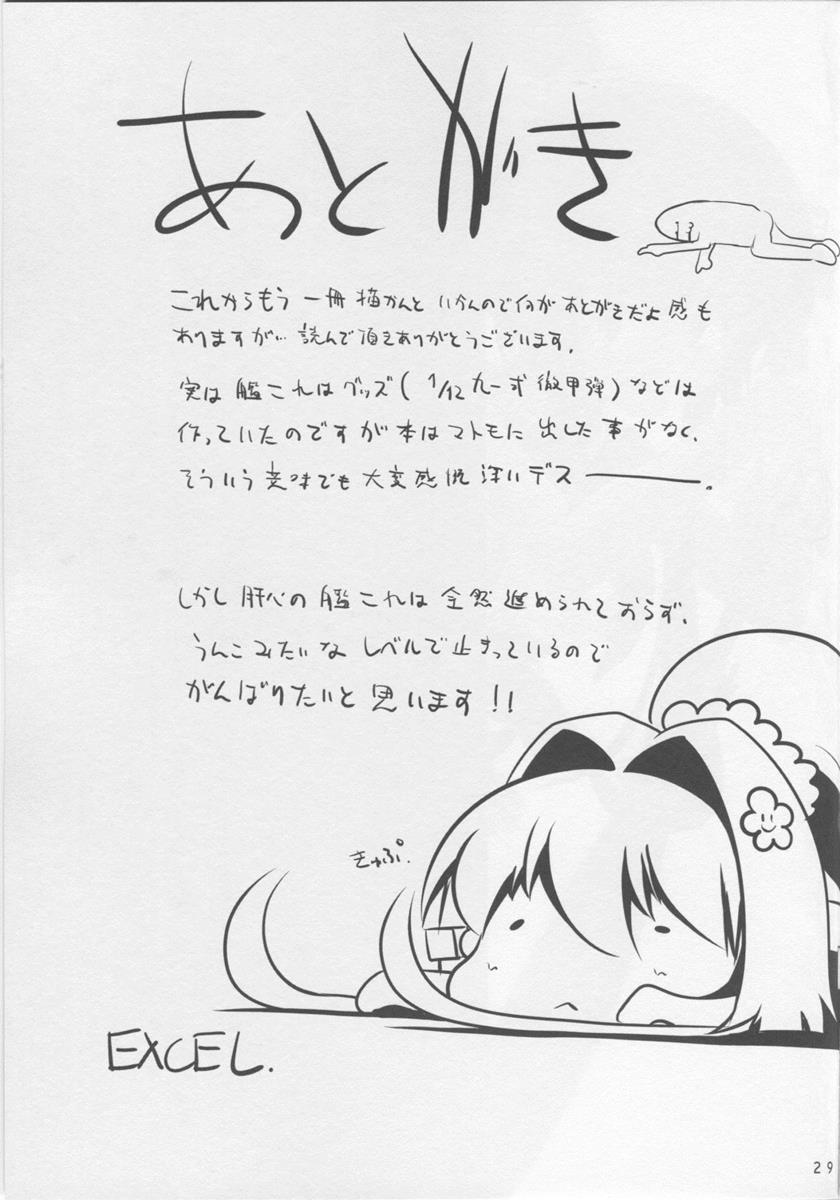 あとがき
これからもう一冊描かんといかんので何があとがきだよ感も
ありますが…読んで頂きありがとうございます。
実は艦これはグッズ(1/12 九一式徹甲弾)などは
作っていたのですが本はマトモに出した事がなく、
そういう意味でも大変感慨深いデスーーー。
しかし肝心の艦これは全然進められておらず、
うんこみたいなレベルで止まっているので
がんばりたいと思います!!
きゅぷ.
EXCEL.
29